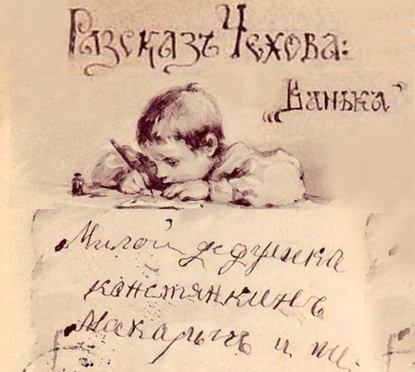 Разсказъ Чехова:
„Ванька"
Милой дедушка
констянкинъ
Макарычъ и пи.